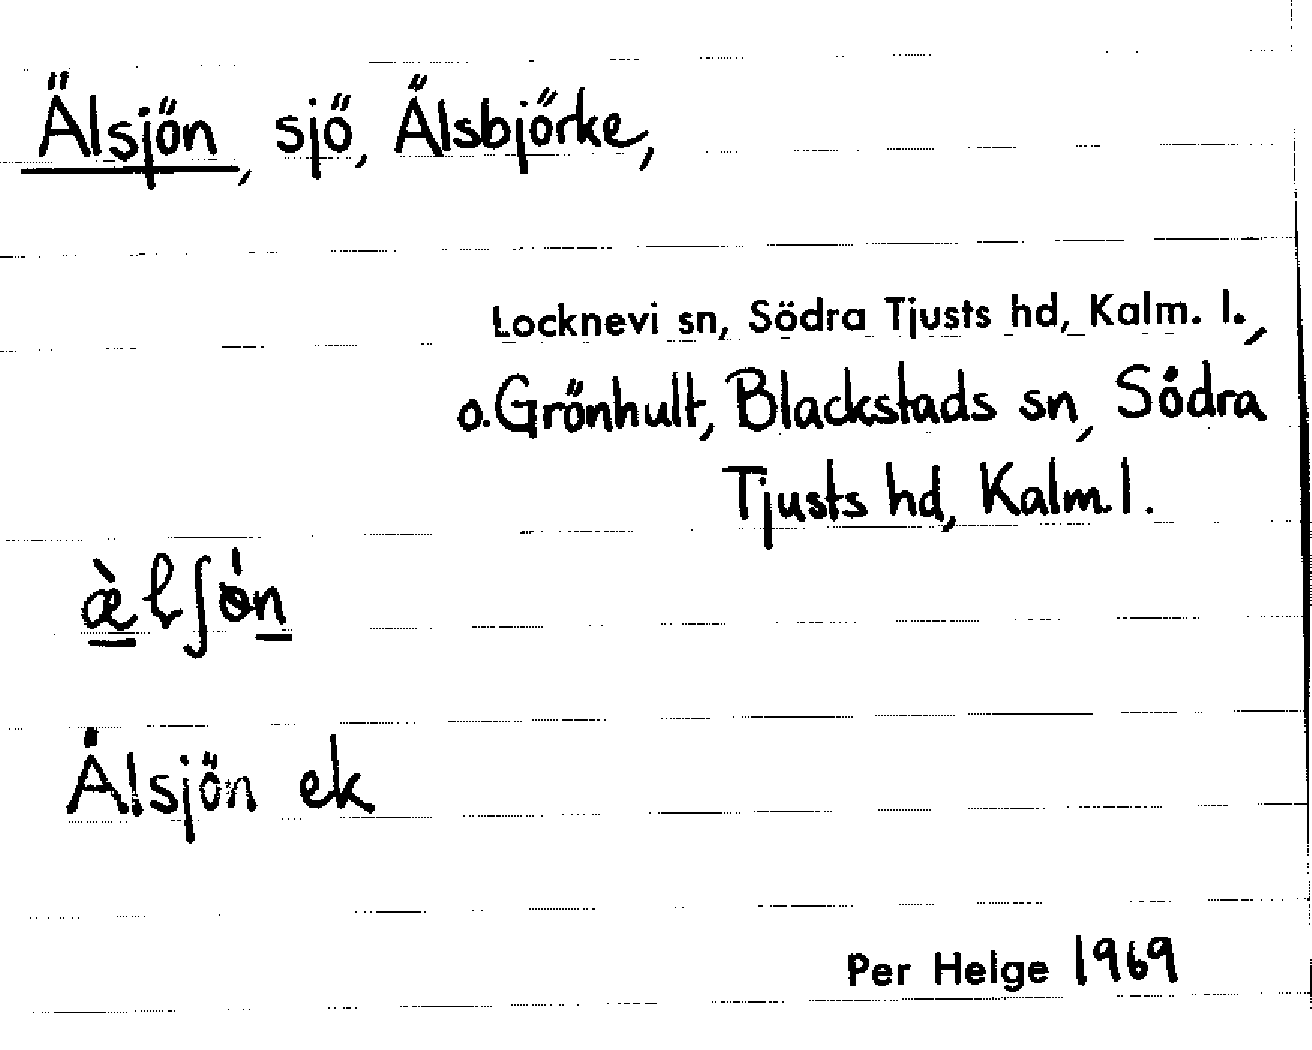 Älsjön, sjö, Älsbjörke,
Locknevi sn, Södra Tjusts hd, Kalm. l.,
o. Grönhult, Blackstads sn, Södra
Tjusts hd, Kalm. l.
æ̀lʃö́n
Älsjön ek
Per Helge 1969